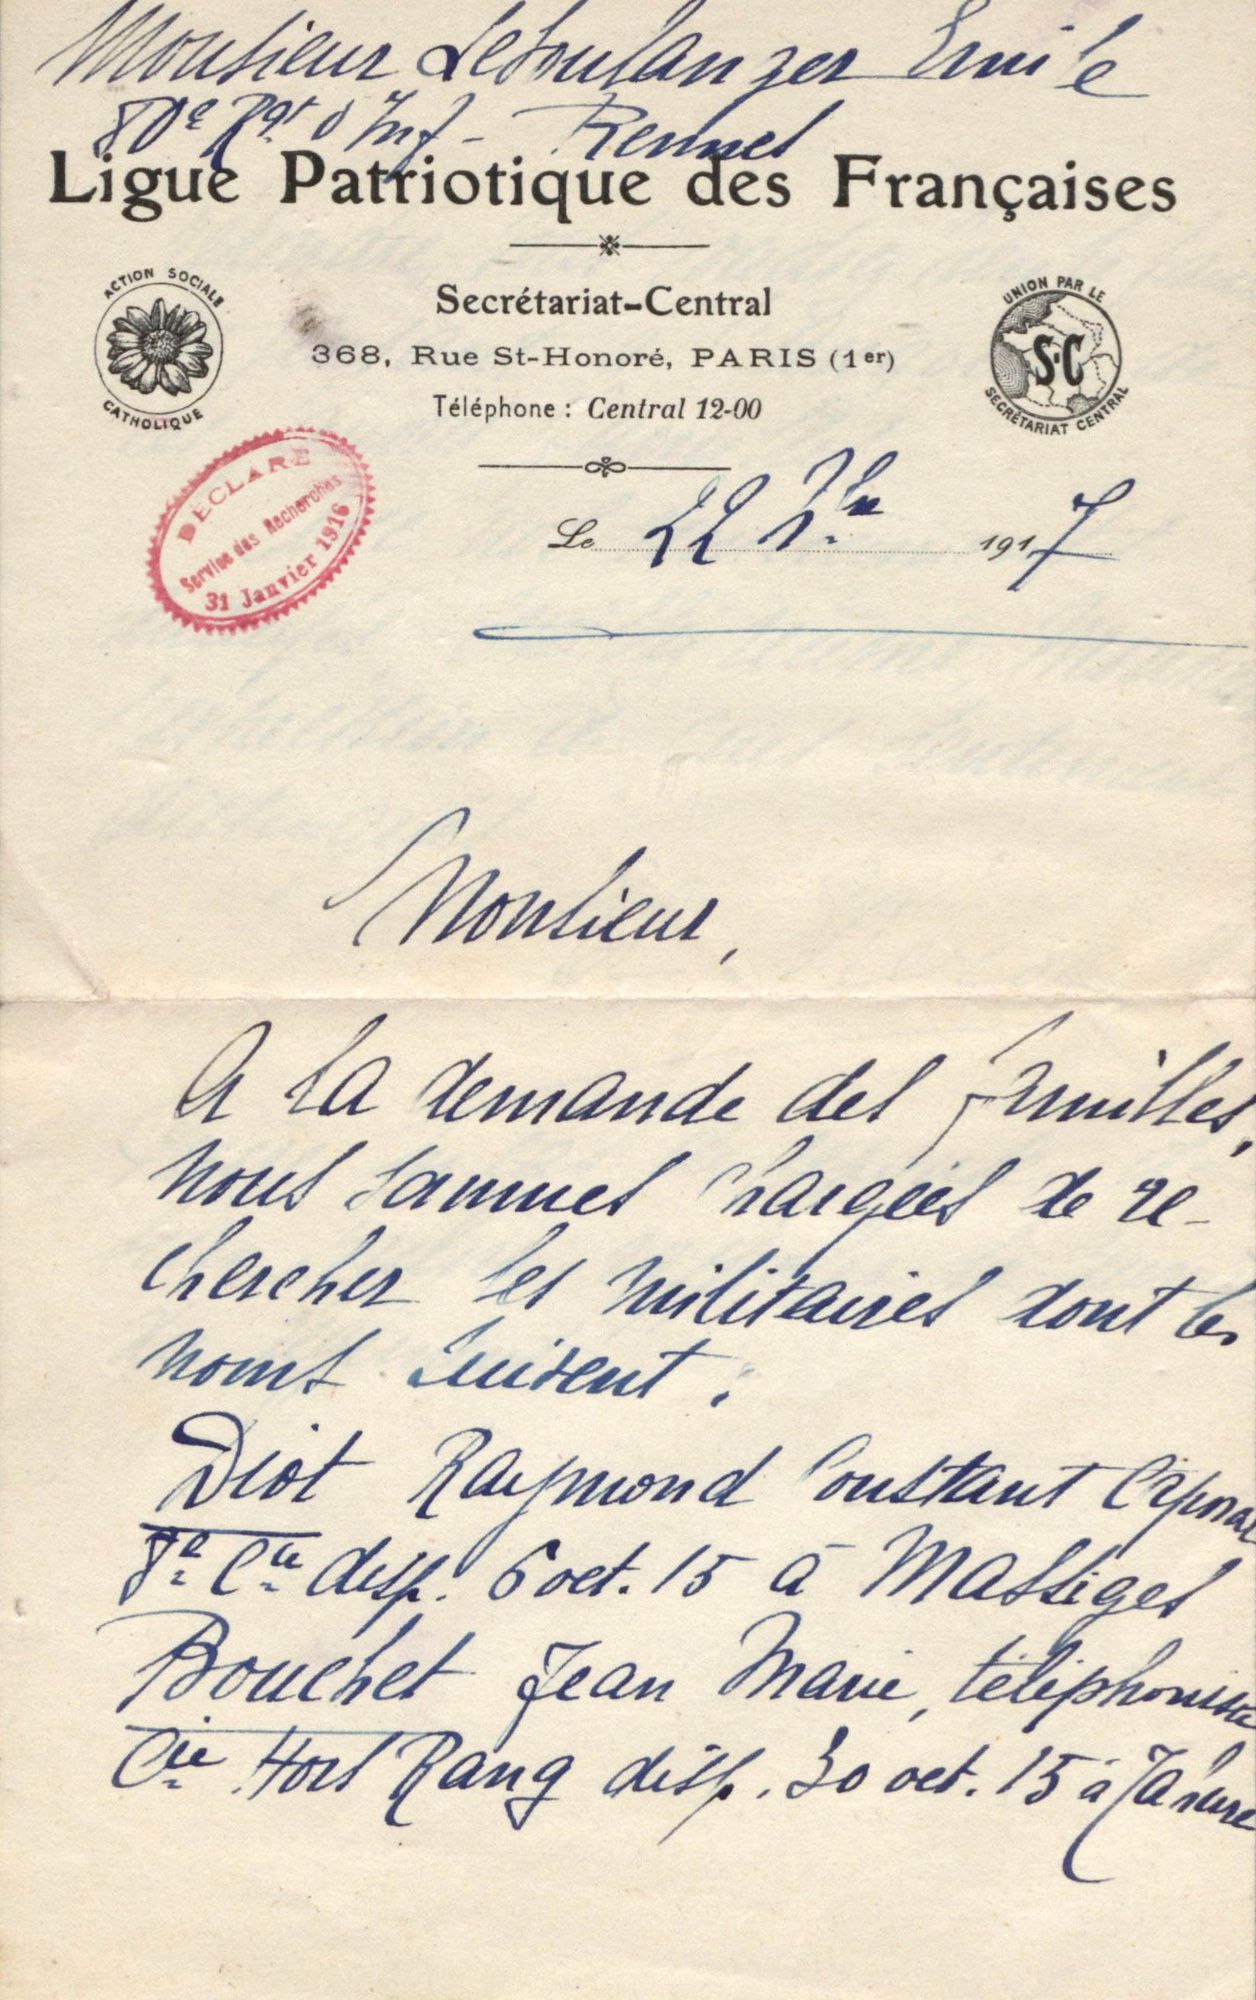 Monsieur Leboulanger Emile
Rgt d'Inf - Rennes
Ligue Patriotique des Françaises
ACTION SOCIALE
CATHOLIQUE
Secrétariat-Central
368, Rue St-Honoré, PARIS (1er)
Téléphone : Central 12-00
UNION PAR LE
S-C
SECRÉTARIAT CENTRAL
DÉCLARÉ
Service des Recherches
31 Janvier 1916
Le 22 1917
Monsieur,
A la demande des familles,
nous sommes chargées de re-
chercher les militaires dont les
noms suivent :
Diot Raymond Constant Caporal
Cie disp. 6 oct. 15 à Massiges
Bouchet Jean Marie, téléphoniste
Cie Hors Rang disp. 30 oct. 15 à Tahure